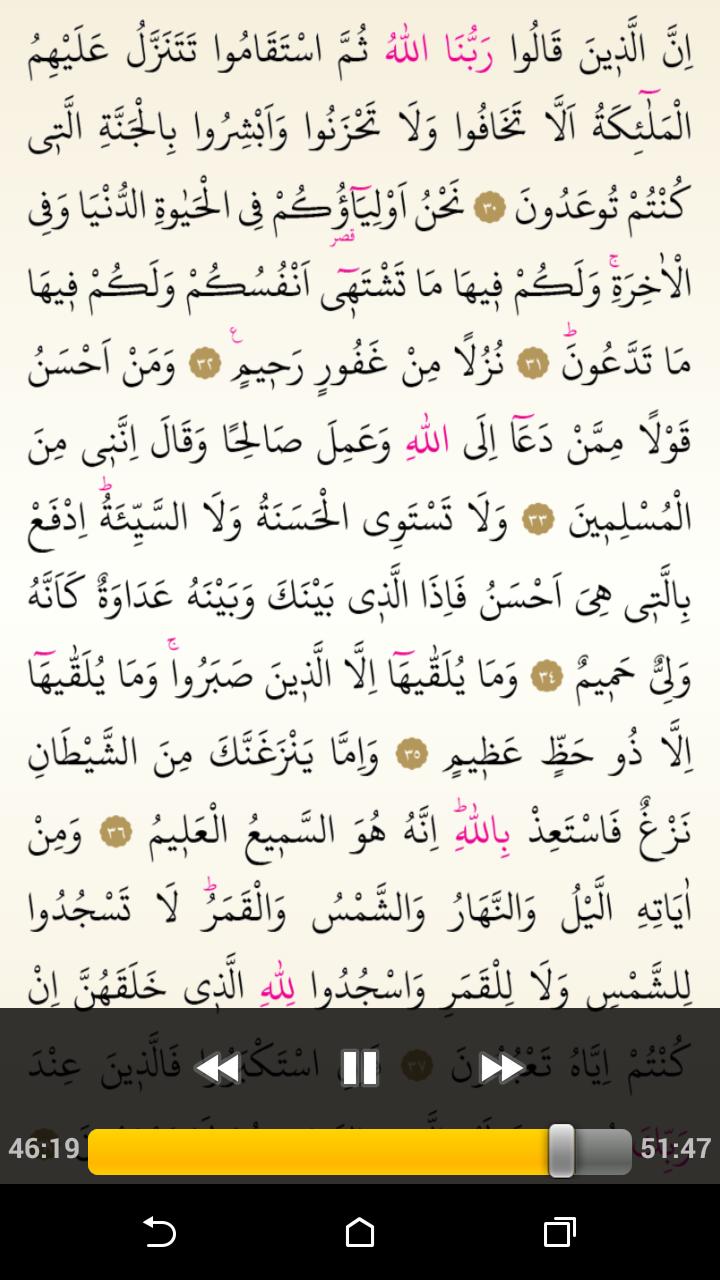 اِنَّ الَّذٖينَ قَالُوا رَبُّنَا اللّٰهُ ثُمَّ اسْتَقَامُوا تَتَنَزَّلُ عَلَيْهِمُ
الْمَلٰٓئِكَةُ اَلَّا تَخَافُوا وَلَا تَحْزَنُوا وَاَبْشِرُوا بِالْجَنَّةِ الَّتٖى
كُنْتُمْ تُوعَدُونَ ٣٠ نَحْنُ اَوْلِيَٓاؤُ۬كُمْ فِى الْحَيٰوةِ الدُّنْيَا وَفِى
قصر
الْاٰخِرَةِۚ وَلَكُمْ فٖيهَا مَا تَشْتَهٖٓى اَنْفُسُكُمْ وَلَكُمْ فٖيهَا
مَا تَدَّعُونَؕ ٣١ نُزُلًا مِنْ غَفُورٍ رَحٖيمٍ ع ٣٢ وَمَنْ اَحْسَنُ
قَوْلًا مِمَّنْ دَعَٓا اِلَى اللّٰهِ وَعَمِلَ صَالِحًا وَقَالَ اِنَّنٖى مِنَ
الْمُسْلِمٖينَ ٣٣ وَلَا تَسْتَوِى الْحَسَنَةُ وَلَا السَّيِّئَةُؕ اِدْفَعْ
بِالَّتٖى هِىَ اَحْسَنُ فَاِذَا الَّذٖى بَيْنَكَ وَبَيْنَهُ عَدَاوَةٌ كَاَنَّهُ
وَلِىٌّ حَمٖيمٌ ٣٤ وَمَا يُلَقّٰيهَٓا اِلَّا الَّذٖينَ صَبَرُواۚ وَمَا يُلَقّٰيهَٓا
اِلَّا ذُو حَظٍّ عَظٖيمٍ ٣٥ وَاِمَّا يَنْزَغَنَّكَ مِنَ الشَّيْطَانِ
نَزْغٌ فَاسْتَعِذْ بِاللّٰهِؕ اِنَّهُ هُوَ السَّمٖيعُ الْعَلٖيمُ ٣٦ وَمِنْ
اٰيَاتِهِ الَّيْلُ وَالنَّهَارُ وَالشَّمْسُ وَالْقَمَرُؕ لَا تَسْجُدُوا
لِلشَّمْسِ وَلَا لِلْقَمَرِ وَاسْجُدُوا لِلّٰهِ الَّذٖى خَلَقَهُنَّ اِنْ
كُنْتُمْ اِيَّاهُ تَعْبُدُونَ ٣٧ فَاِنِ اسْتَكْبَرُوا فَالَّذٖينَ عِنْدَ
46:19 51:47